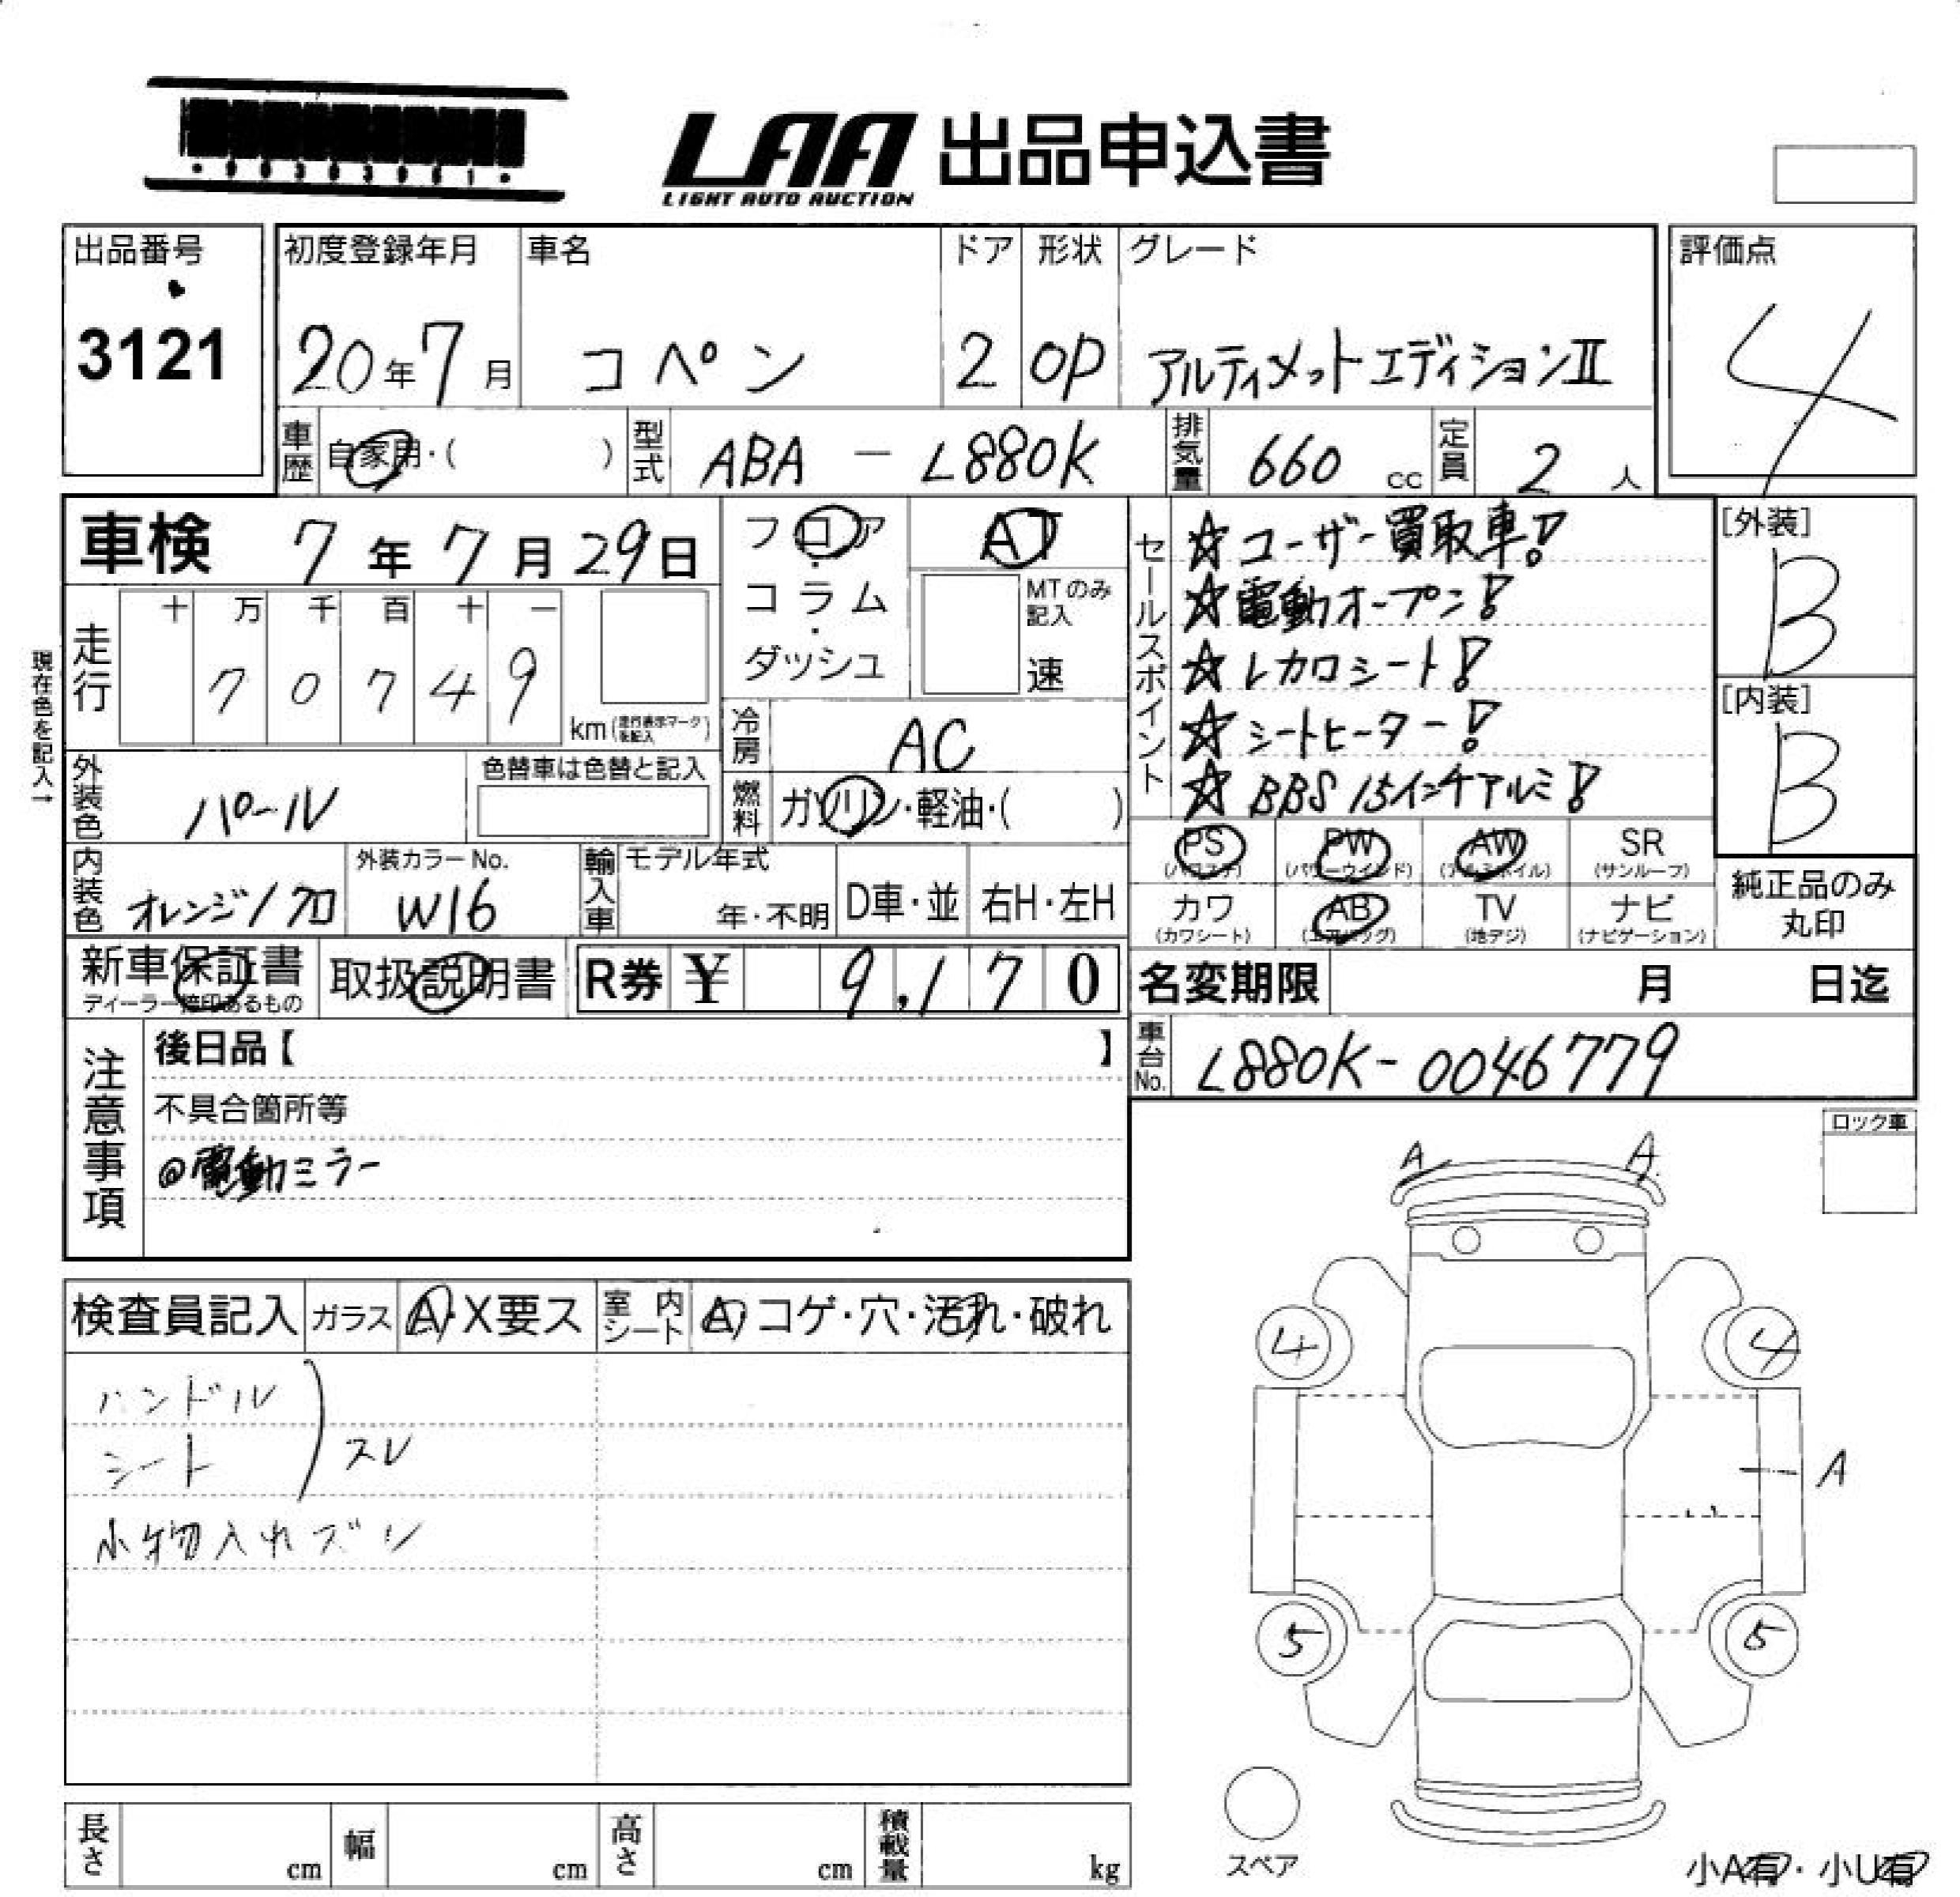 LAA 出品申込書
LIGHT AUTO AUCTION
出品番号
3121
初度登録年月
20年7月
車名
コペン
ドア
2
形状
OP
グレード
アルティメットエディションII
評価点
4
車歴
自家用・( )
型式
ABA - L880K
排気量
660 cc
定員
2 人
車検 7年7月29日
フロア・コラム・ダッシュ
AT
MTのみ記入
速
セールスポイント
☆ユーザー買取車!
☆電動オープン!
☆レカロシート!
☆シートヒーター!
☆BBS 15インチアルミ!
[外装]
B
[内装]
B
現在色を記入→
走行
十 万 千 百 十 一
7 0 7 4 9
km(走行表示マークを記入)
冷房
AC
外装色
パール
色替車は色替と記入
燃料
ガソリン・軽油・( )
内装色
オレンジ/クロ
外装カラーNo.
W16
輸入車
モデル年式
年・不明
D車・並
右H・左H
PS
(パワステ)
PW
(パワーウインド)
AW
(アルミホイル)
SR
(サンルーフ)
カワ
(カワシート)
AB
(エアバッグ)
TV
(地デジ)
ナビ
(ナビゲーション)
純正品のみ
丸印
新車保証書
ディーラー捺印あるもの
取扱説明書
R券 ¥ 9,170
名変期限 月 日迄
車台No.
L880K-0046779
注意事項
後日品【 】
不具合箇所等
@電動ミラー
ロック車
A A
4 4
A
5 5
スペア
小A有・小U有
検査員記入
ガラス
A・X要ス
室内シート
A コゲ・穴・汚れ・破れ
ハンドル
シート
スレ
小物入れズレ
長さ cm
幅 cm
高さ cm
積載量 kg